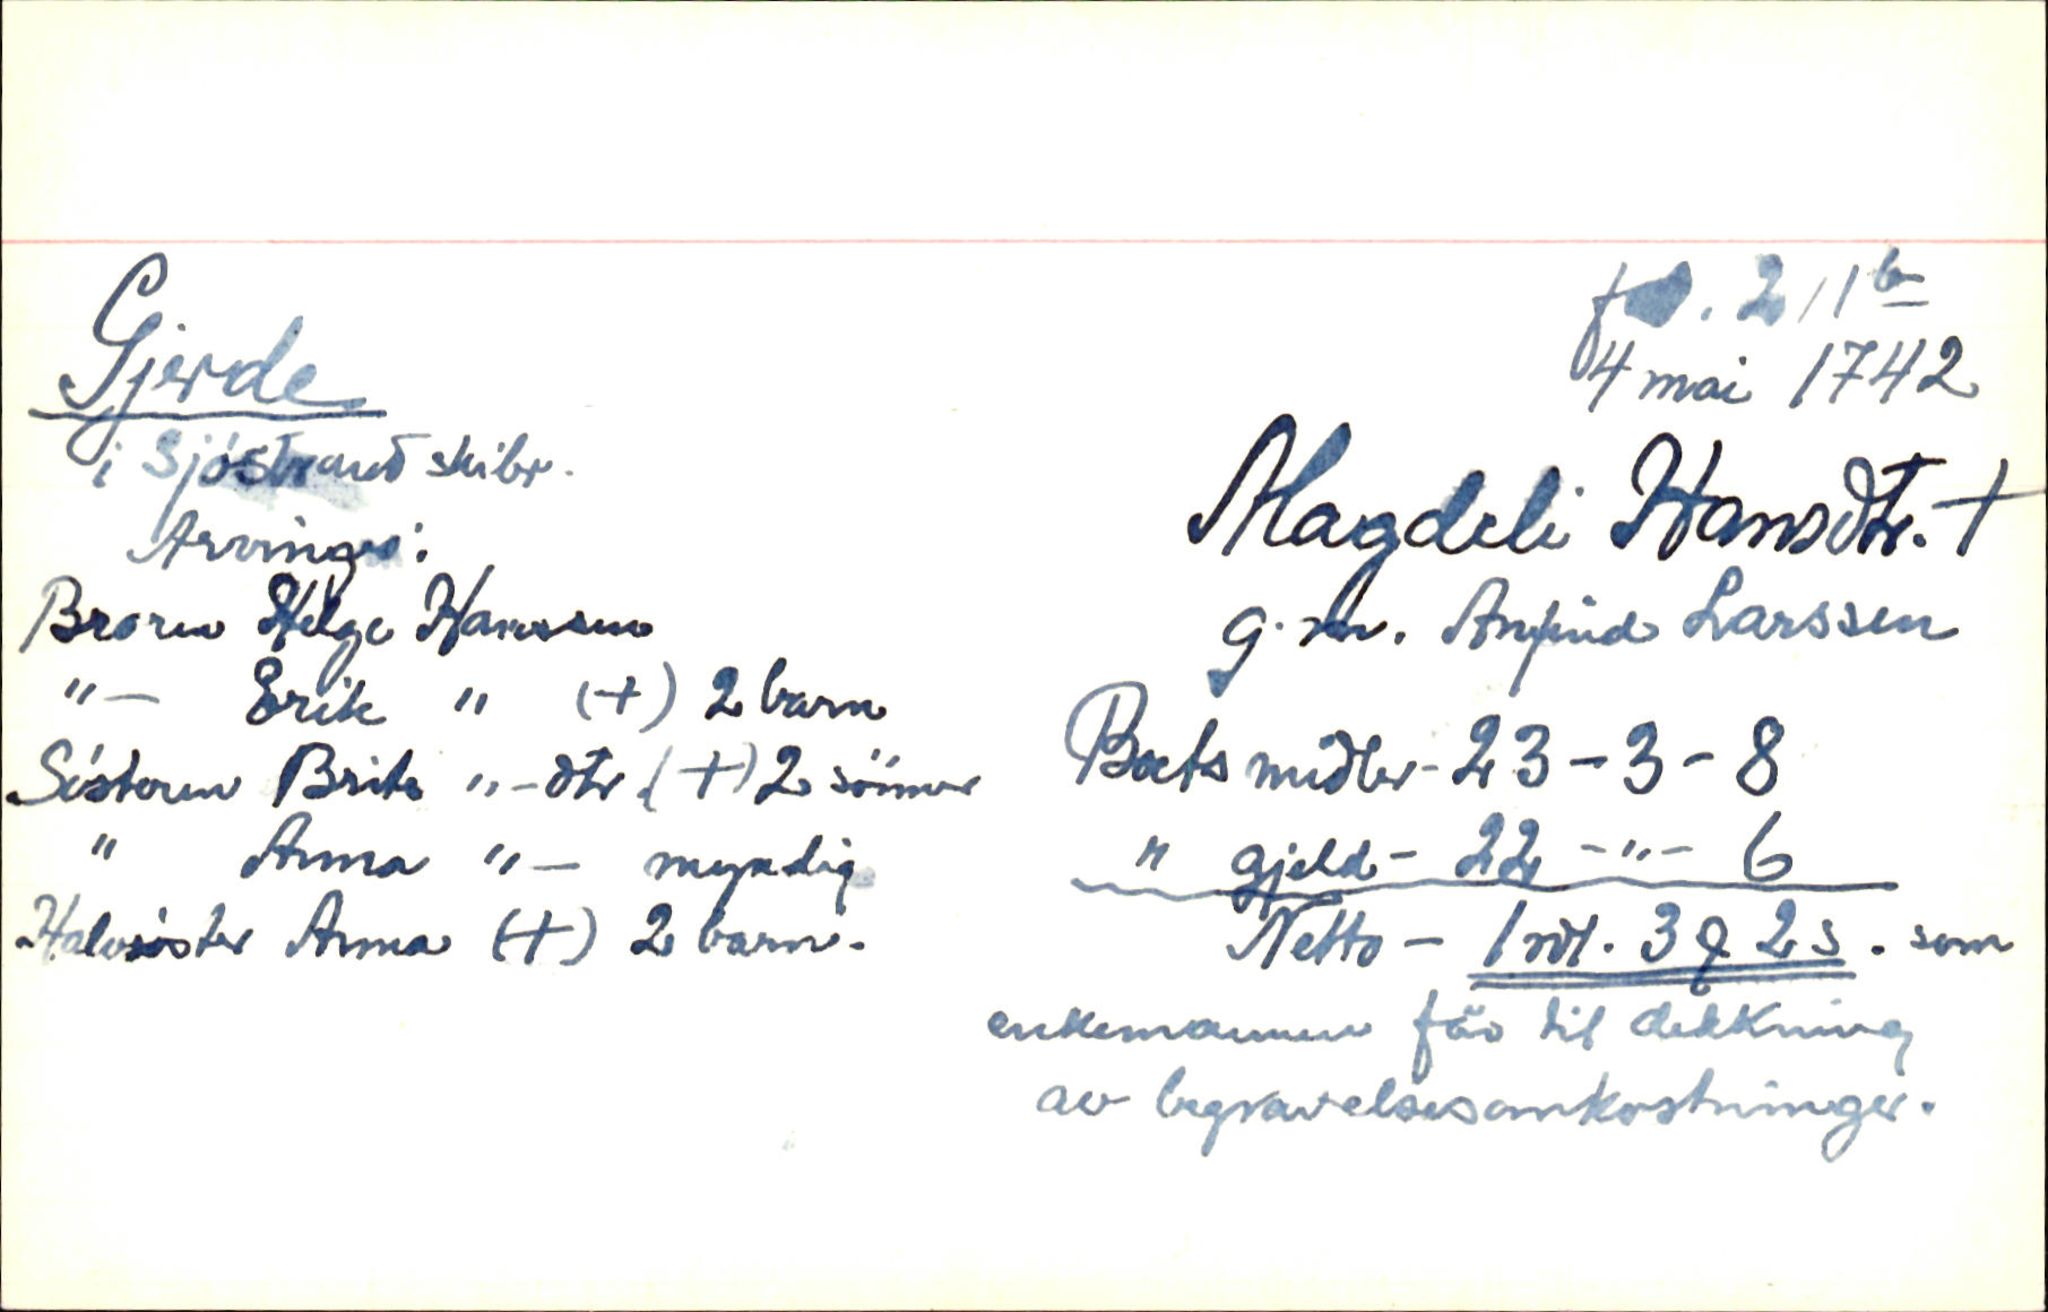 Gjerde
i Sjöstrand skibr.
Arvinger:
Broren Helge Hanssen
"— Erik " (+) 2 barn
Søsteren Brita "-dtr (+) 2 sönner
" Anna "— myndig
Halvsøster Anna (+) 2 barn.
fol. 211b
4 mai 1742
Magdeli Hansdtr. +
g.m. Anfind Larssen
Boets midler - 23 - 3 - 8
" gjeld - 22 - " - 6
Netto - 1 rdl. 3 ƍ 2 s. som
enkemannen får til dekkning
av begravelsesomkostninger.